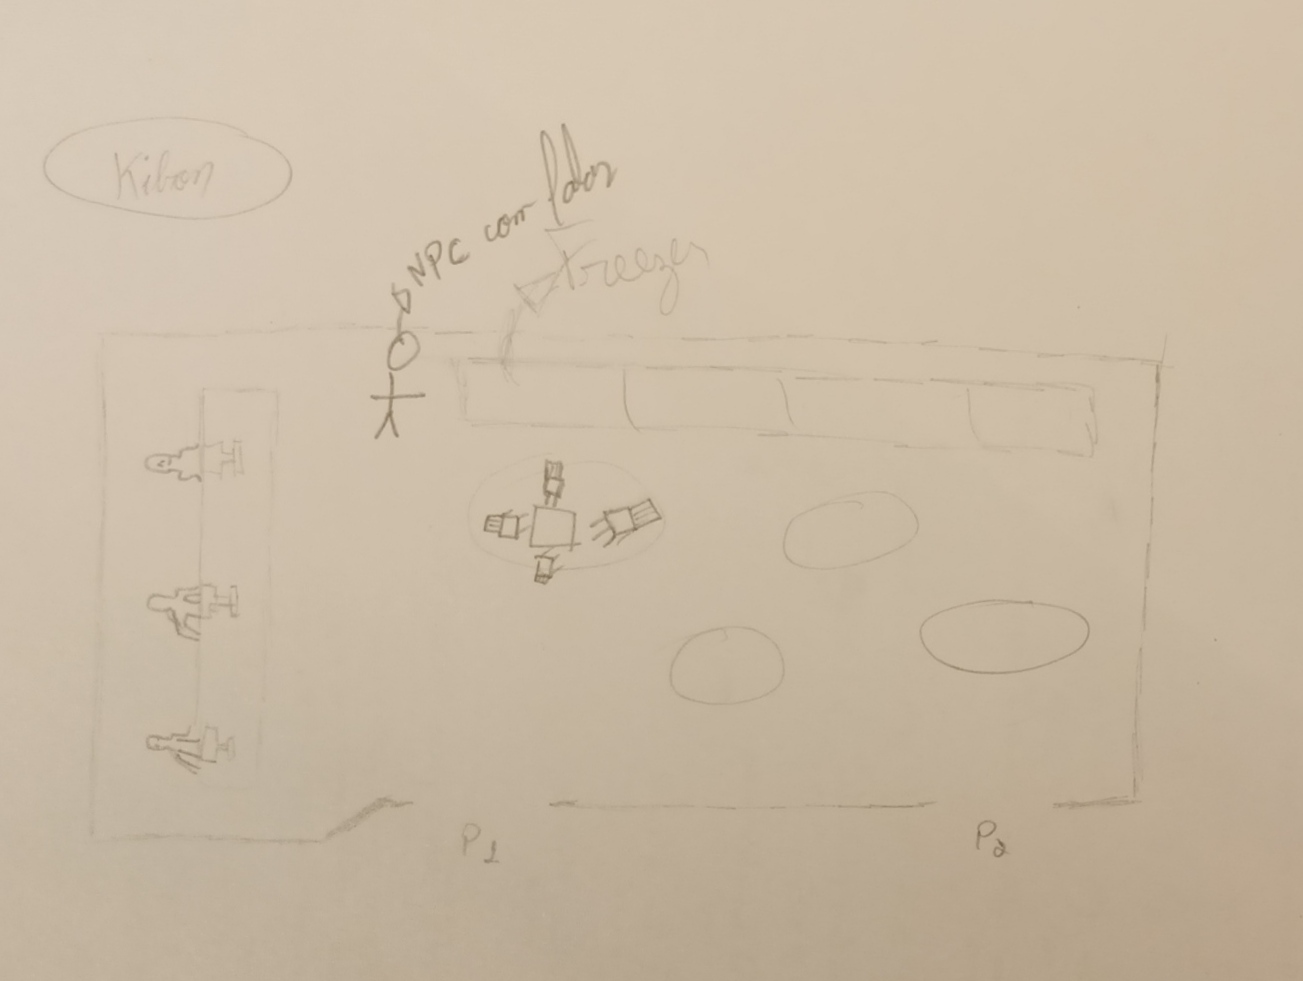 Kibon
NPC com falas
Freezer
P1
P2